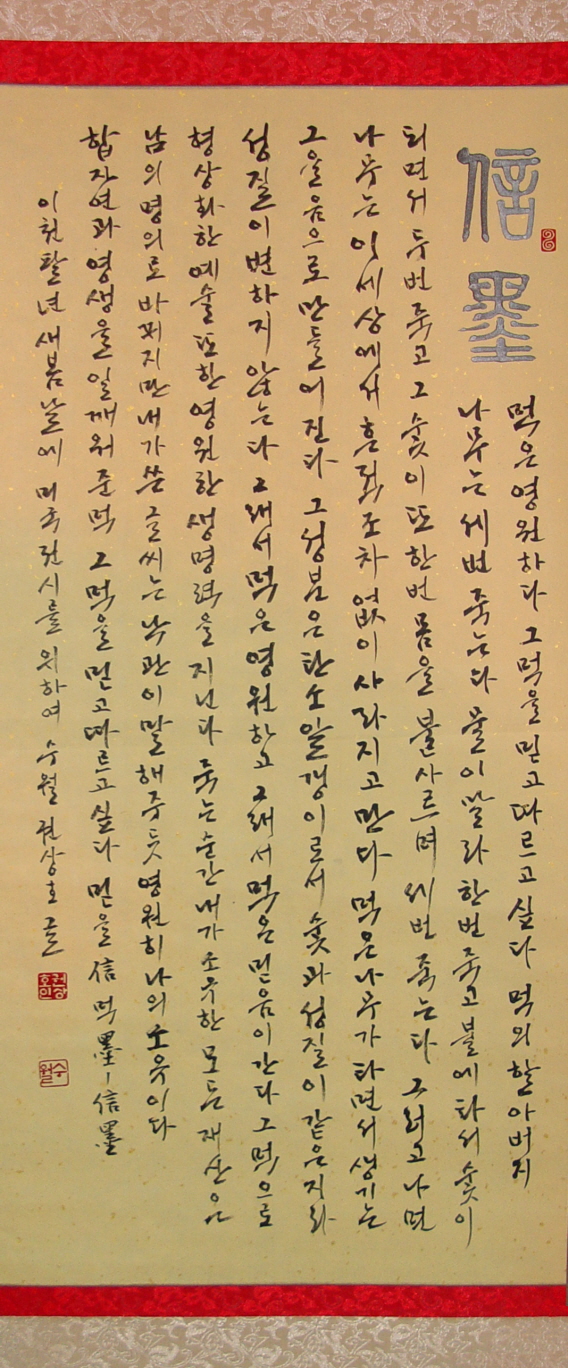 信墨
먹은 영원하다 그 먹을 믿고 따르고 싶다 먹의 할아버지
나무는 세번 죽는다 물이 말라 한번 죽고 불에 타서 숯이
되면서 두번 죽고 그 숯이 또 한번 몸을 불사르며 세번 죽는다 그러고 나면
나무는 이 세상에서 흔적조차 없이 사라지고 만다 먹은 나무가 타면서 생기는
그을음으로 만들어진다 그 성분은 탄소 알갱이로서 숯과 성질이 같은지라
성질이 변하지 않는다 그래서 먹은 영원하고 그래서 먹은 믿음이 간다 그 먹으로
형상화한 예술 또한 영원한 생명력을 지닌다 죽는 순간 내가 소유한 모든 재산은
남의 명의로 바뀌지만 내가 쓴 글씨는 낙관이 말해주듯 영원히 나의 소유이다
합자연과 영생을 일깨워준 먹 그 먹을 믿고 따르고 싶다 믿을 信 먹 墨 - 信墨
이천팔년 새봄날에 미국전시를 위하여 수월 권상호 글
권상호인
수월